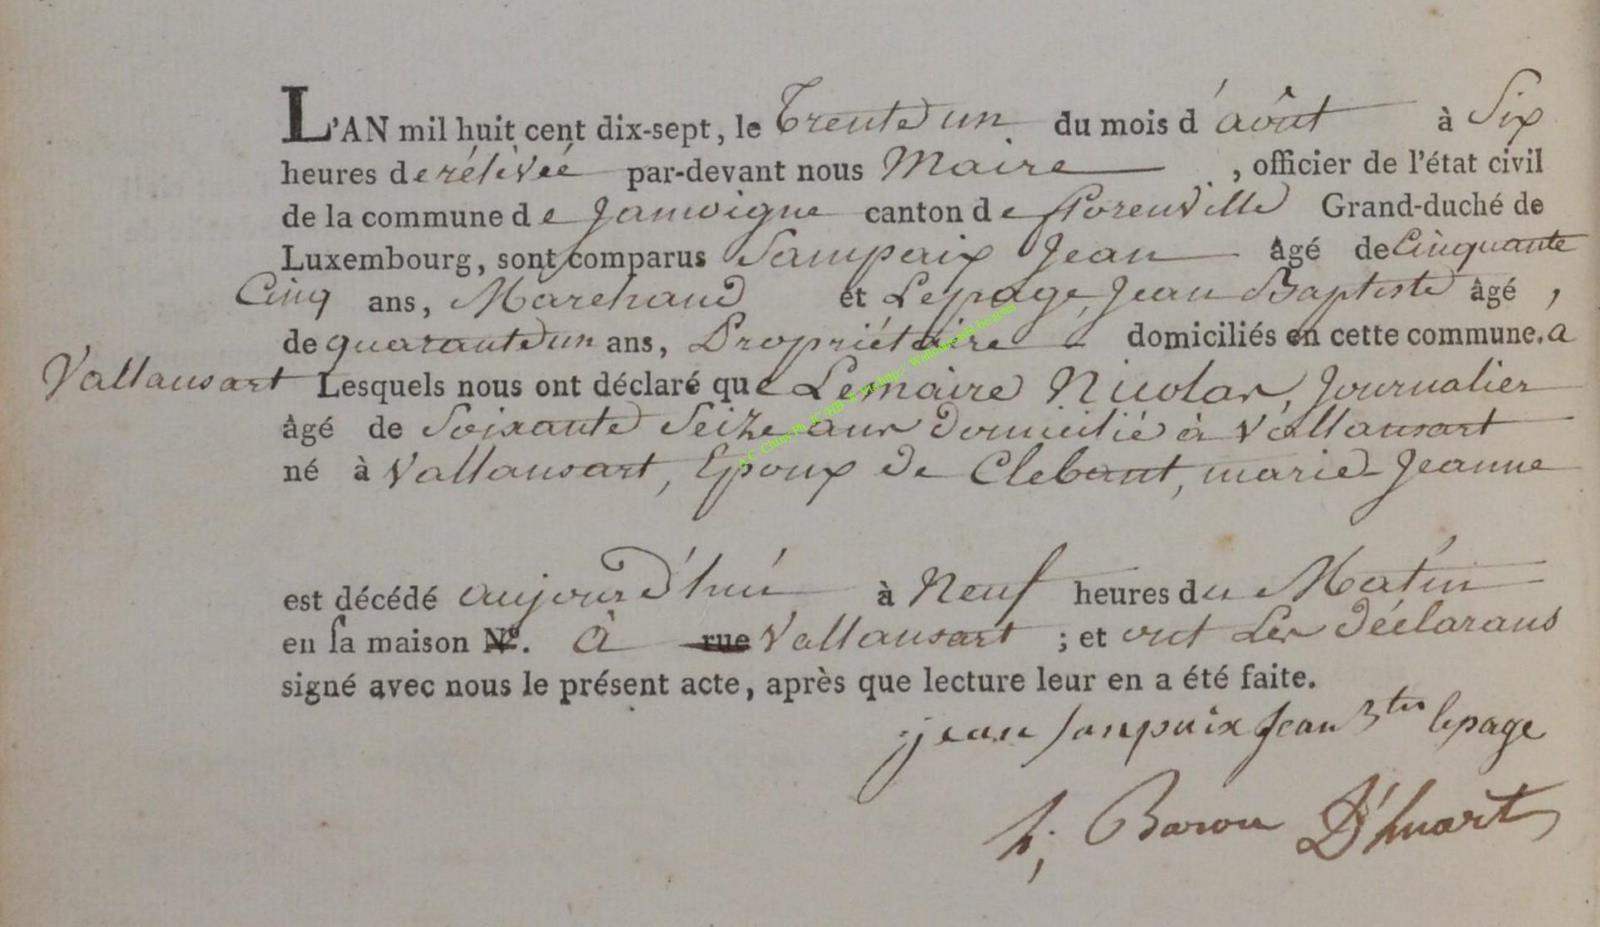 L'AN mil huit cent dix-sept, le Trente un du mois d'août à Six
heures de rélévée par-devant nous Maire, officier de l'état civil
de la commune de Jamoigne canton de florenville Grand-duché de
Luxembourg, sont comparus Sampaix Jean âgé de Cinquante
Cinq ans, Marchand et Lepage Jean Baptiste âgé,
de quarante un ans, Propriétaire domiciliés en cette commune. à
Vallansart Lesquels nous ont déclaré que Lemaire Nicolas, Journalier
âgé de Soixante Seize ans Domicilié à Vallansart
né à Vallansart, Epoux de Clebant, marie Jeanne
est décédé aujourd'hui à Neuf heures du Matin
en sa maison N°. à rue Vallansart ; et ont Les déclarans
signé avec nous le présent acte, après que lecture leur en a été faite.
jean sanpaix Jean Btes lepage
h; Baron D'huart